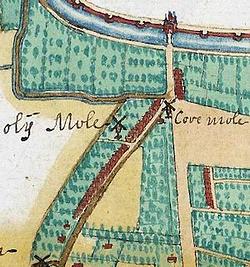 olÿ Mole
Cove mole